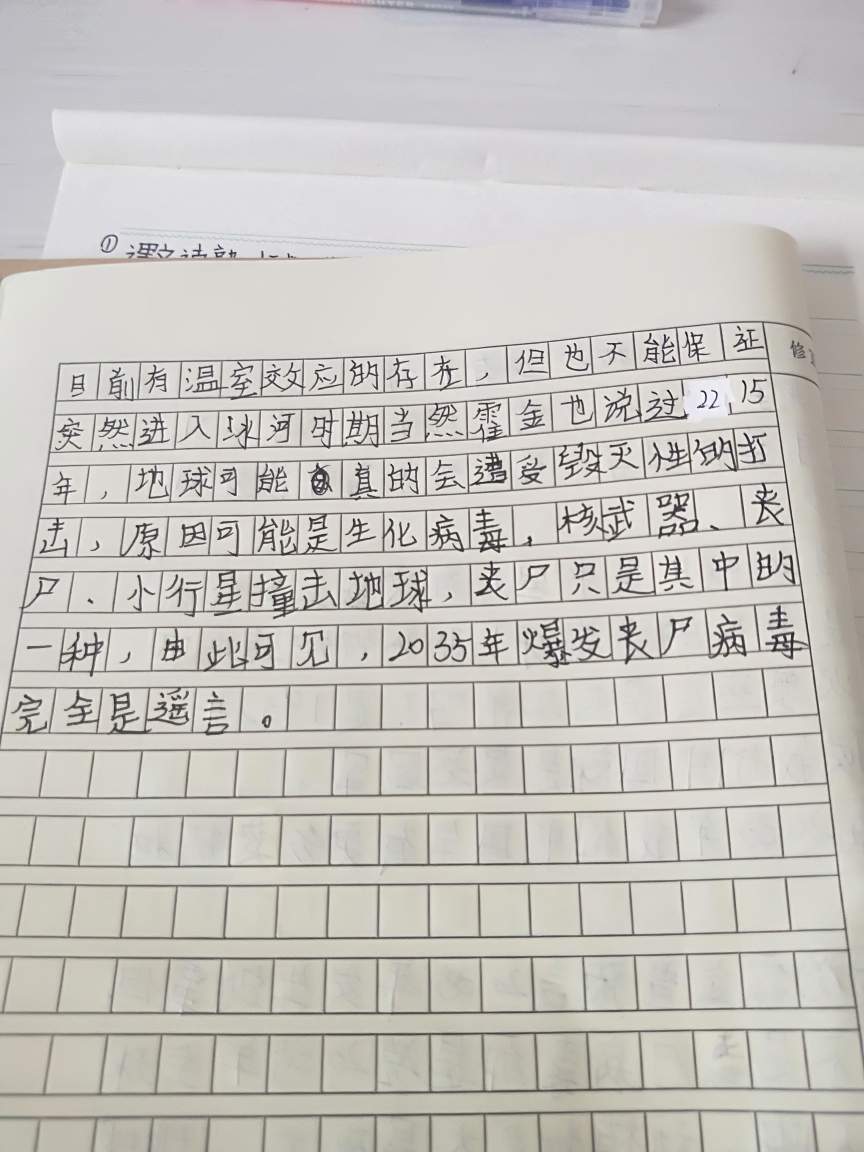 ①课文读熟
目前有温室效应的存在，但也不能保证
修
突然进入冰河时期当然霍金也说过2215
年，地球可能真的会遭受毁灭性的打
击，原因可能是生化病毒，核武器、丧
尸、小行星撞击地球，丧尸只是其中的
一种，由此可见，2035年爆发丧尸病毒
完全是遥言。